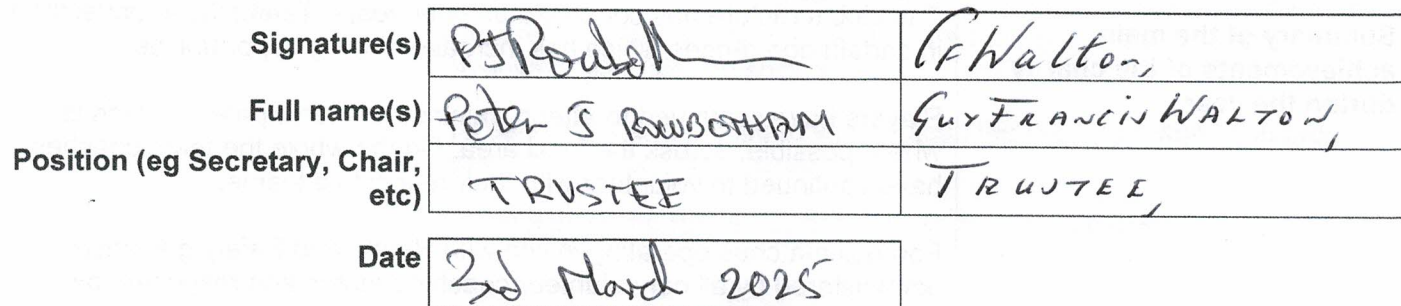 Signature(s) PJRowboth GFWalton,
Full name(s) Peter J ROWBOTHAM GUY FRANCIS WALTON,
Position (eg Secretary, Chair, etc) TRUSTEE TRUSTEE,
Date 3d March 2025